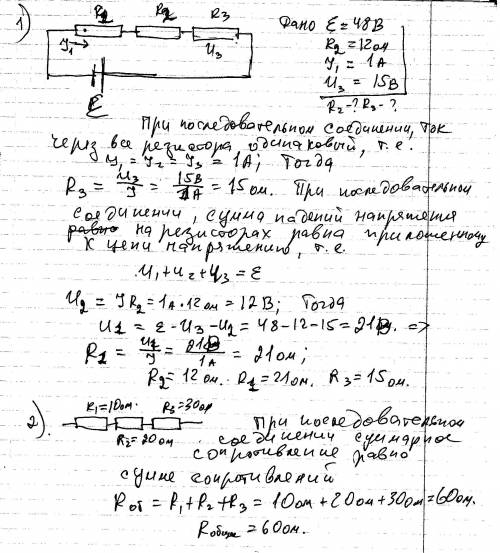 1)
R2 R2 R3
Y1 → U3
Ɛ
Дано Ɛ = 48В
R2 = 12ом
Y1 = 1А
U3 = 15В
R2-? R3-?
При последовательном соединении, ток
через все резистора одинаковый, т.е.
Y1 = Y2 = Y3 = 1А; Тогда
R3 = U3/Y = 15В/1А = 15ом. При последовательном
соединении, сумма падений напряжения
равно на резисторах равна приложенному
к цепи напряжению, т.е.
U1+U2+U3 = Ɛ
U2 = YR2 = 1А·12ом = 12В; Тогда
U1 = Ɛ - U3 - U2 = 48-12-15 = 21В. =>
R1 = U1/Y = 21В/1А = 21ом;
R2 = 12ом. R1 = 21ом. R3 = 15ом.
2).
R1=10ом. R3=30ом
R2=20ом
При последовательном
соединении суммарное
сопротивление равно
сумме сопротивлений
Rот = R1+R2+R3 = 10ом+20ом+30ом=60ом.
Rобщ = 60ом.